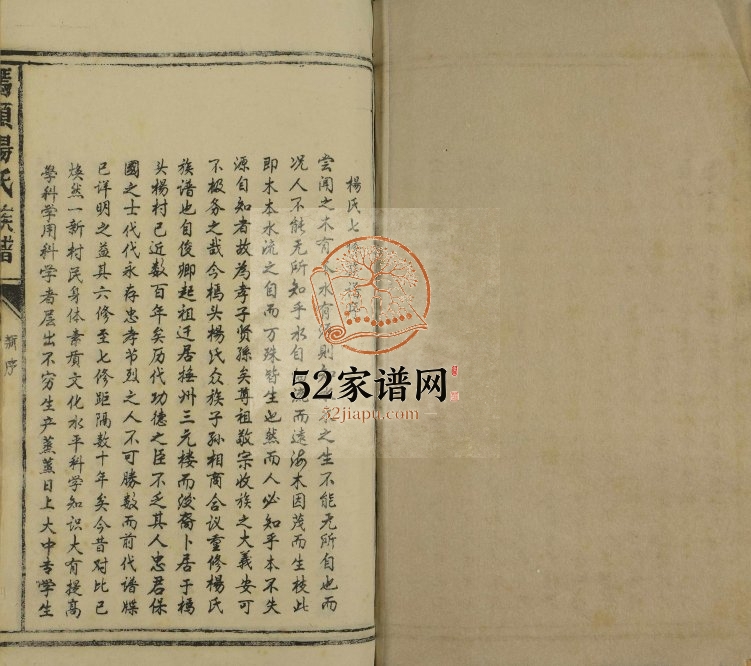 楊氏七
尝闻之木有 水有 則 之生不能无所自也而
况人不能无所知乎水自 流而遠海木因茂而生枝此
即木本水流之自而万殊皆生也然而人必知乎本不失
源自知者故為孝子賢孫矣尊祖敬宗收族之大義安可
不极务之哉今榪头楊氏众族子孙相商合议重修楊氏
族谱也自俊卿起祖迁居 州三元楼而 裔卜居于榪
头楊村已近数百年矣历代功德之臣不乏其人忠君保
國之士代代永存忠孝节烈之人不可勝数而前代谱牒
已详明之益其六修至七修距隔数十年矣今昔对比已
焕然一新村民身体素质文化水平科学知识大有提高
學科学用科学者层出不穷生产蒸蒸日上大中专学生
楊氏族譜
新序
52家谱网
52jiapu.com